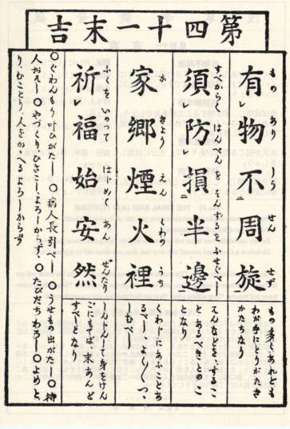 第四十一末吉
有物不周旋
もの あり しう せん せず
もの多くあれども
わが手にとりがたき
かたちなり
須防損半邊
すべからく はんぺんを そんするを ふせぐべし
そんなどを、するこ
とあるべきとのこ
となり
家郷煙火裡
か きょう えん くわの うち
くわじにあふことあ
るべし、よくつゝ
しむべし
祈福始安然
ふくを いのって はじめて あん ぜんたり
しんじんして身をけん
ごにもてば、末あんど
すべしとなり
○ぐわんもう叶ひがたし○病人長引べし○うせもの出がたし○待
人おそし○やづくり、ひきこし、よろしからず、○たびだちわろし○よめと
り、むことり、人をかゝへるよろしからず